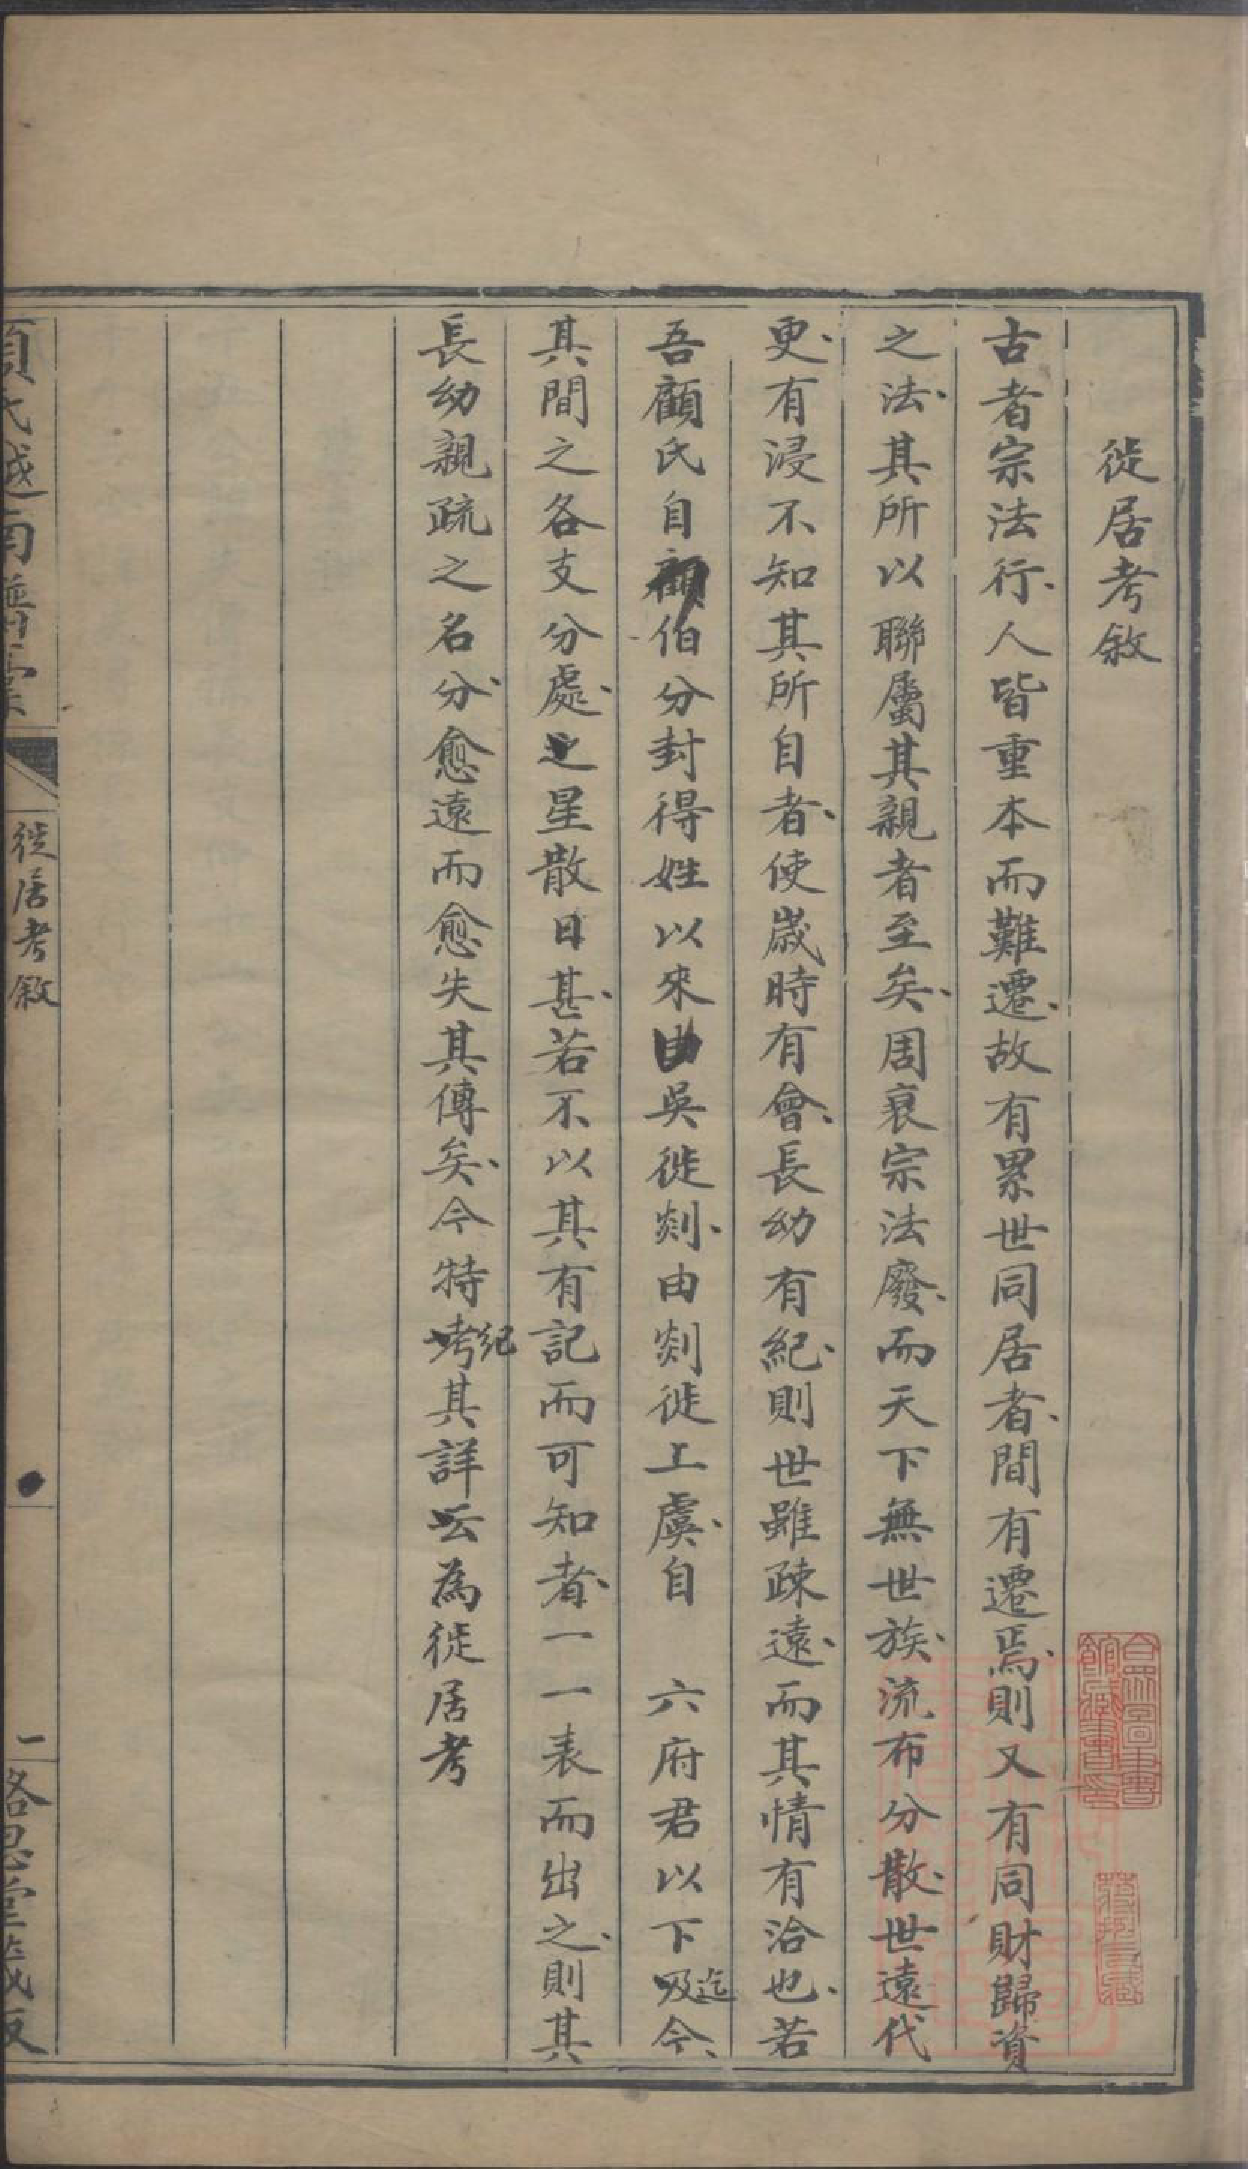 徙居考敘
古者宗法行、人皆重本而難遷、故有累世同居者、間有遷焉、則又有同財歸資
之法、其所以聯屬其親者至矣、周衰宗法廢、而天下無世族、流布分散、世遠代
更、有浸不知其所自者、使歲時有會、長幼有紀、則世雖疎遠、而其情有洽也、若
吾顧氏自顧伯分封得姓以來由吳徙剡、由剡徙上虞、自　六府君以下吸迄今、
其間之各支分處、之星散日甚、若不以其有記而可知者、一一表而出之、則其
長幼親疏之名分、愈遠而愈失其傳矣、今特考紀其詳云為徙居考
徙居考敘
一